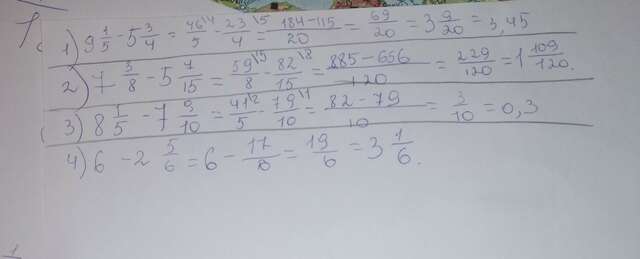 1) 9 1/5 - 5 3/4 = 46\4/5 - 23\5/4 = 184-115/20 = 69/20 = 3 9/20 = 3,45
2) 7 3/8 - 5 7/15 = 59\15/8 - 82\8/15 = 885-656/120 = 229/120 = 1 109/120.
3) 8 1/5 - 7 9/10 = 41\2/5 - 79\1/10 = 82-79/10 = 3/10 = 0,3
4) 6 - 2 5/6 = 6 - 17/6 = 19/6 = 3 1/6.